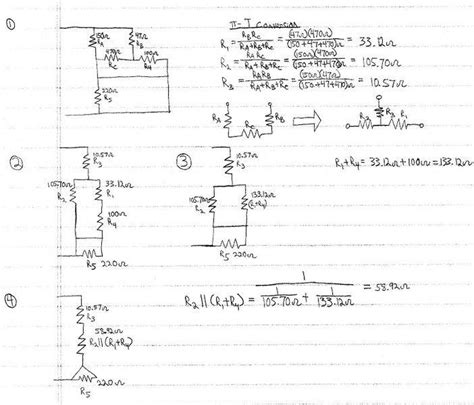 ①
150Ω
R_A
47Ω
R_B
470Ω
R_C
100Ω
R_4
220Ω
R_5
π-T Conversion
R_1 = R_B R_C / (R_A + R_B + R_C) = (47Ω)(470Ω) / (150 + 47 + 470)Ω = 33.12Ω
R_2 = R_A R_C / (R_A + R_B + R_C) = (150Ω)(470Ω) / (150 + 47 + 470)Ω = 105.70Ω
R_3 = R_A R_B / (R_A + R_B + R_C) = (150Ω)(47Ω) / (150 + 47 + 470)Ω = 10.57Ω
R_A
R_B
R_C
R_2
R_3
R_1
②
10.57Ω
R_3
105.70Ω
R_2
33.12Ω
R_1
100Ω
R_4
R_5 220Ω
③
10.57Ω
R_3
105.70Ω
R_2
133.12Ω
(R_1+R_4)
R_5 220Ω
R_1 + R_4 = 33.12Ω + 100Ω = 133.12Ω
④
10.57Ω
R_3
58.92Ω
R_2 || (R_1+R_4)
220Ω
R_5
R_2 || (R_1 + R_4) = 1 / (1/105.70Ω + 1/133.12Ω) = 58.92Ω